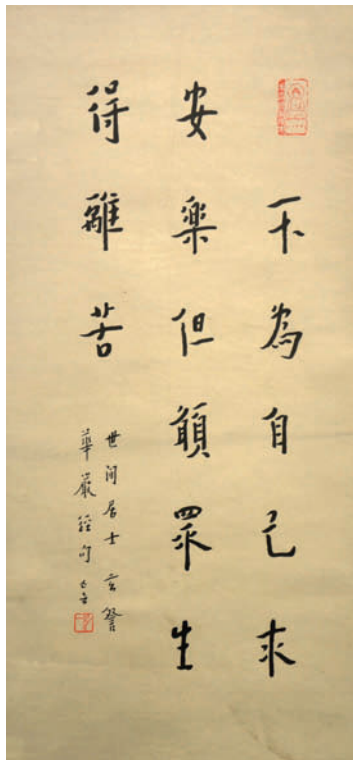 不為自己求
安樂但願眾生
得離苦
世間居士玄詧
華嚴經句